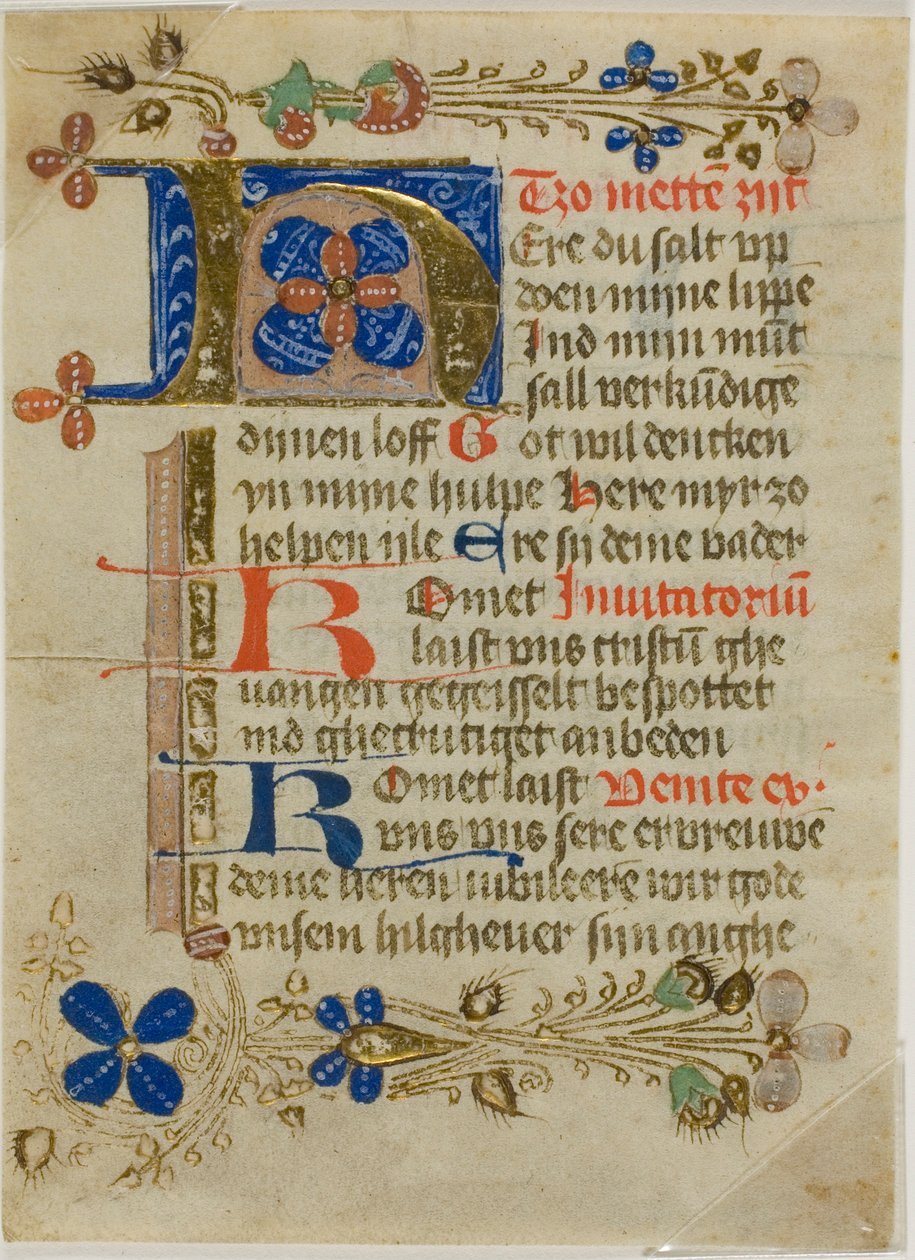 Tzo mettē zijt
HEre du salt vp
doen mijne lippe
Ind mijn mūt
sall verkūdige
dijnen loff Got wil dencken
yn mijne hulpe Here myr zo
helpen ijle Ere sij deme vader
Komet Inuitatoriū
laist vns cristū ghe
uangen gegeisselt bespottet
ind ghecrutiget anbeden
Komet laist Venite ex
vns vns sere ervreuwe
deme heren iubileerē wir gode
vnsem hilgheuer sijn anghe